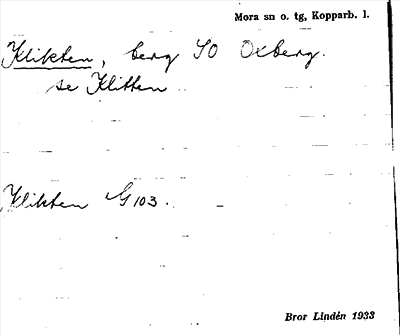 Mora sn o. tg, Kopparb. l.
Klikten, berg SO Oxberg.
se Klitten
Klikten G 103.
Bror Lindén 1933